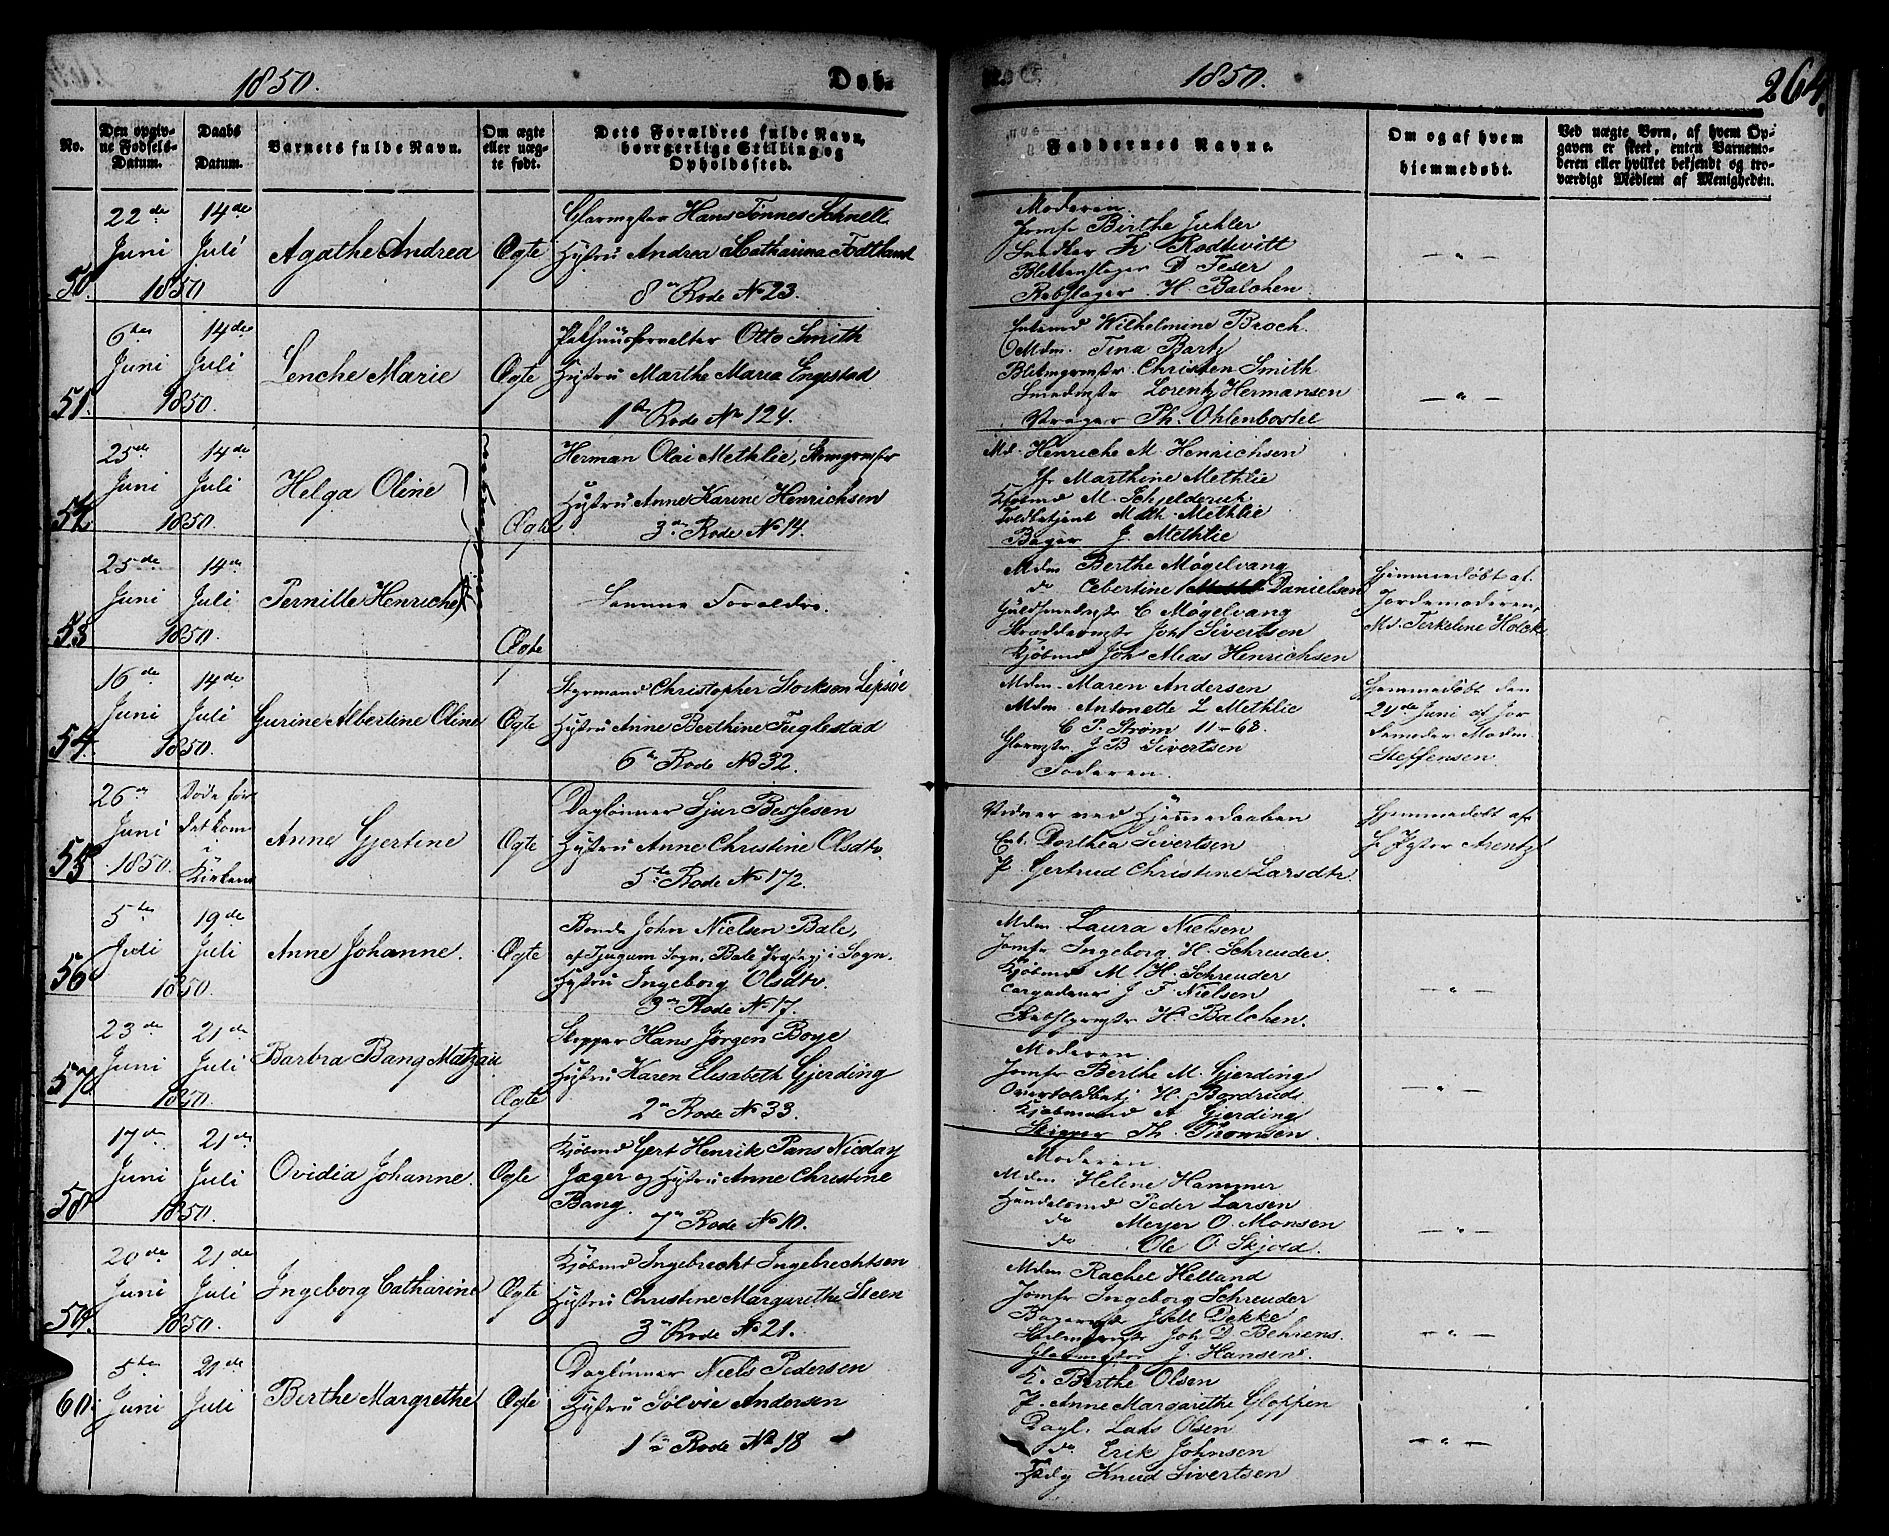 1850.
Døb-
1850.
264.
No.
Den opgiv-
ne Fødsels-
Datum.
Daabs
Datum.
Barnets fulde Navn.
Om ægte
eller uæg-
te født.
Dets Forældres fulde Navn,
borgerlige Stilling og
Opholdsted.
Faddernes Navne.
Om og af hvem
hjemmedøbt.
Ved uægte Børn, af hvem Op-
gaven er skeet, enten Barnemo-
deren eller hvilket bekjendt og tro-
værdigt Medlem af Menigheden.
50.
22de
Juni
1850
14de
Juli
Agathe Andrea
Ægte
Glarmester Hans Tønnes Schnell
Hustru Andrea Catharina Fodtland
8de Rode No 23.
Moderen
Jomfr Birthe Juhler
Fr. Rodtwitt
Blikkenslager D Feser
Rebslager H. Balchen
51.
6te
Juni
1850.
14de
Juli
Lenche Marie
Ægte
Pakhuusforvalter Otto Smith
Hustru Marthe Maria Engestad
1ste Rode No 124.
Wilhelmine Broch
Mdm. Tina Bartz
Christen Smith
Smedmstr Lorentz Hermansen
Vrager Th. Ohlenbostel
52.
25de
Juni
1850.
14de
Juli
Helga Oline
Ægte
Herman Olai Methlie,
Hustru Anne Karine Henrichsen
3de Rode No 14.
Md. Henriche M. Henrichsen
Jfr Marthine Methlie
Kjøbmd M. Schjelderup
Toldbetjent Math. Methlie
Bager J. Methlie
53
25de
Juni
1850.
14de
Juli
Pernille Henriche
Tvillinger
Ægte
Samme Foraldre.
Mdm Berthe Møgelvang
do Albertine Danielsen
Guldsmedmstr C Møgelvang
Skræddermstr Joh Sivertsen
Kjøbmd Joh Meas Henrichsen
Hjemmedøbt af
Jordemoderen,
Md. Terkeline Holck
54.
16de
Juni
1850.
14de
Juli
Gurine Albertine Oline
Ægte
Styrmand Christopher Storksen Lepsøe
Hustru Anne Berthine Fuglestad
6te Rode No 32.
Mdm. Maren Andersen
Mdm. Antonette L Methlie
C P. Strøm 11-68.
Glarmstr J B Sivertsen
Faderen.
Hjemmedøbt den
24de Juni af Jor
demoder Madm.
Steffensen.
55
26de
Juni
1850.
Døde før
det kom
i
Kirken
Anne Gjertine
Ægte
Daglønner Sjur Bessesen
Hustru Anne Christine Olsdtr.
5te Rode No 172.
Vidner ved Hjemmedaaben
Dorthea Sivertsen
P. Gertrud Christine Larsdtr.
Hjemmedøbt af
Arentz
56
5te
Juli
1850.
19de
Juli
Anne Johanne.
Ægte
Bonde John Nielsen Bale,
af Tjugum Sogn, Bale Præstegj i Sogn.
Hustru Ingeborg Olsdtr.
3de Rode No 17.
Mdm. Laura Nielsen
Jomfr Ingeborg H. Schreuder.
Kjøbmd M. H. Schreuder
Cargadeur J F. Nielsen
Rebslgrmstr H. Balchen.
57
23de
Juni
1850.
21de
Juli
Barbra Bang Matzau
Ægte
Skipper Hans Jørgen Boye
Hustru Karen Elisabeth Gjerding
2de Rode No 33.
Moderen.
Jomfr Berthe M. Gjerding
Overtoldbetj H. Bordruds
Kjøbmand A Gjerding
Skipper Th. Thomsen.
58
17de
Juni
1850.
21de
Juli
Ovidia Johanne.
Ægte
Kjøbmd Gert Henrik Pans Nicolay
Jæger og Hustru Anne Christine
Bang.
7de Rode No 10.
Moderen.
Mdm Helene Hammer
Handelsmd Peder Larsen
do Meyer O. Monsen
do Ole O. Skjold.
59.
20de
Juni
1850.
21de
Juli
Ingeborg Catharine
Ægte
Kjøbmd Ingebrecht Ingebrechtsen
Hustru Christine Margarethe Steen
3de Rode No 21.
Mdm Rachel Helland
Jomfr Ingeborg Schreuder
Bagermstr Dekke
Joh. D. Behrens.
J. Hansen.
60.
5te
Juni
21de
Juli
Berthe Margrethe
Ægte
Daglønner Niels Pedersen
Hustru Sølvie Andersen
1ste Rode No 18
K. Berthe Olsen
P. Anne Margarethe Gloppen
Dagl. Lars Olsen
do Erik Johnsen
Knud Sivertsen